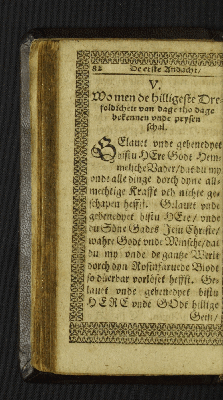 82 De erste Andacht/
V.
Wo men de hilligeste Dre
foldicheit van dage tho dage
bekennen vnde prysen
schal.
GElauet vnde gebenedyet
bistu HEre Godt Hem-
melische Vader/ dat du my
vnde alle dinge dorch dyne all-
mechtige Krafft vth nichte ge-
schapen heffst. Gelauet vnde
gebenedyet bistu HEre/ vnde
du Söne Gades Jesu Christe/
wahre Godt vnde Minsche/ dat
du my vnde de gantze Werlt
dorch dyn Rosinfarwede Blodt
so dürbar vorlöset heffst. Ge-
lauet vnde gebenedyet bistu
HERE vnde GOdt hillige
Geist/